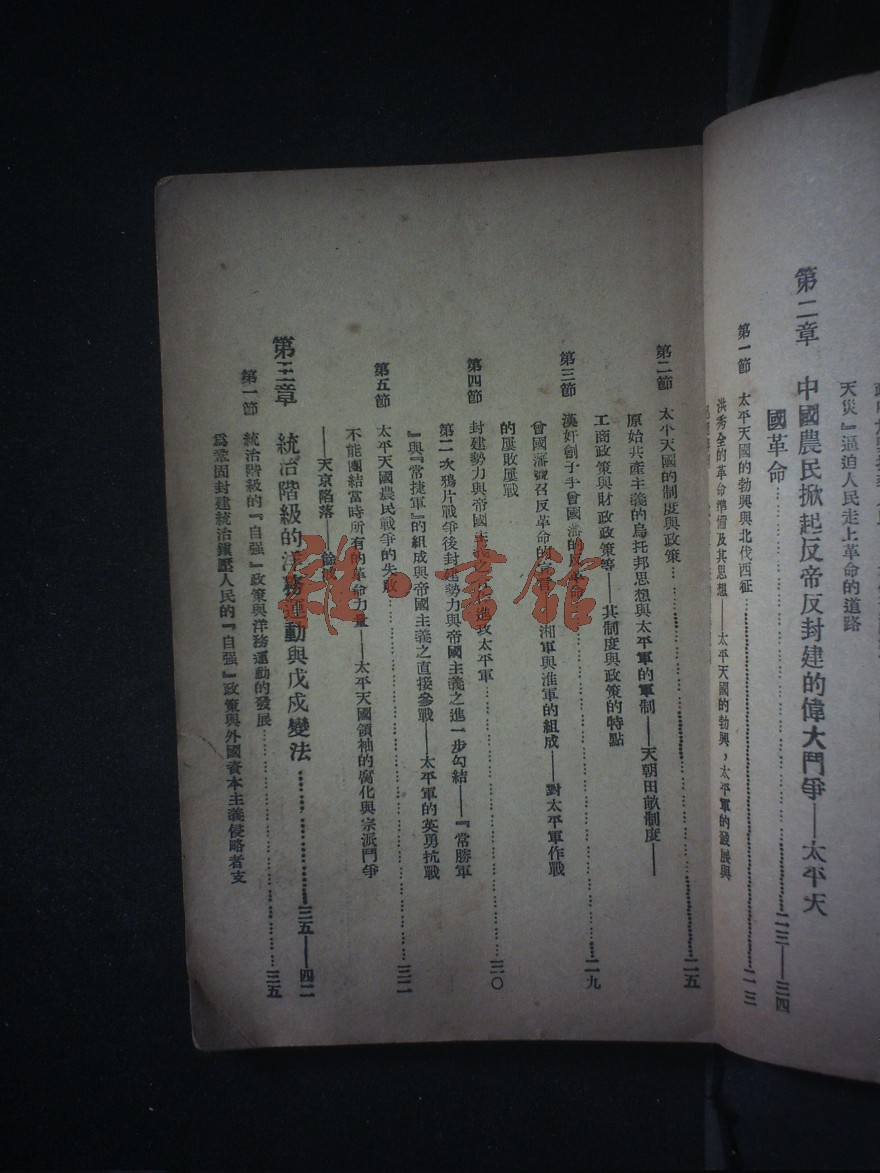 天災』逼迫人民走上革命的道路
第二章 中國農民掀起反帝反封建的偉大鬥爭——太平天
國革命……二三——三四
第一節 太平天國的勃興與北伐西征……二三
洪秀全的革命準備及其思想——太平天國的勃興，太平軍的發展與
第二節 太平天國的制度與政策……二五
原始共產主義的烏托邦思想與太平軍的軍制——天朝田畝制度——
工商政策與財政政策等——其制度與政策的特點
第三節 漢奸劊子手曾國藩的反革命……二九
曾國藩號召反革命的 湘軍與淮軍的組成——對太平軍作戰
的屢敗屢戰
第四節 封建勢力與帝國主義之 進攻太平軍……三〇
第二次鴉片戰爭後封建勢力與帝國主義之進一步勾結——『常勝軍
』與『常捷軍』的組成與帝國主義之直接參戰——太平軍的英勇抗戰
第五節 太平天國農民戰爭的失敗……三二
不能團結當時所有的革命力量——太平天國領袖的腐化與宗派鬥爭
——天京陷落——
第三章 統治階級的洋務運動與戊戌變法……三五——四二
第一節 統治階級的『自强』政策與洋務運動的發展……三五
爲鞏固封建統治鎮壓人民的『自强』政策與外國資本主義侵略者支
雜·書館